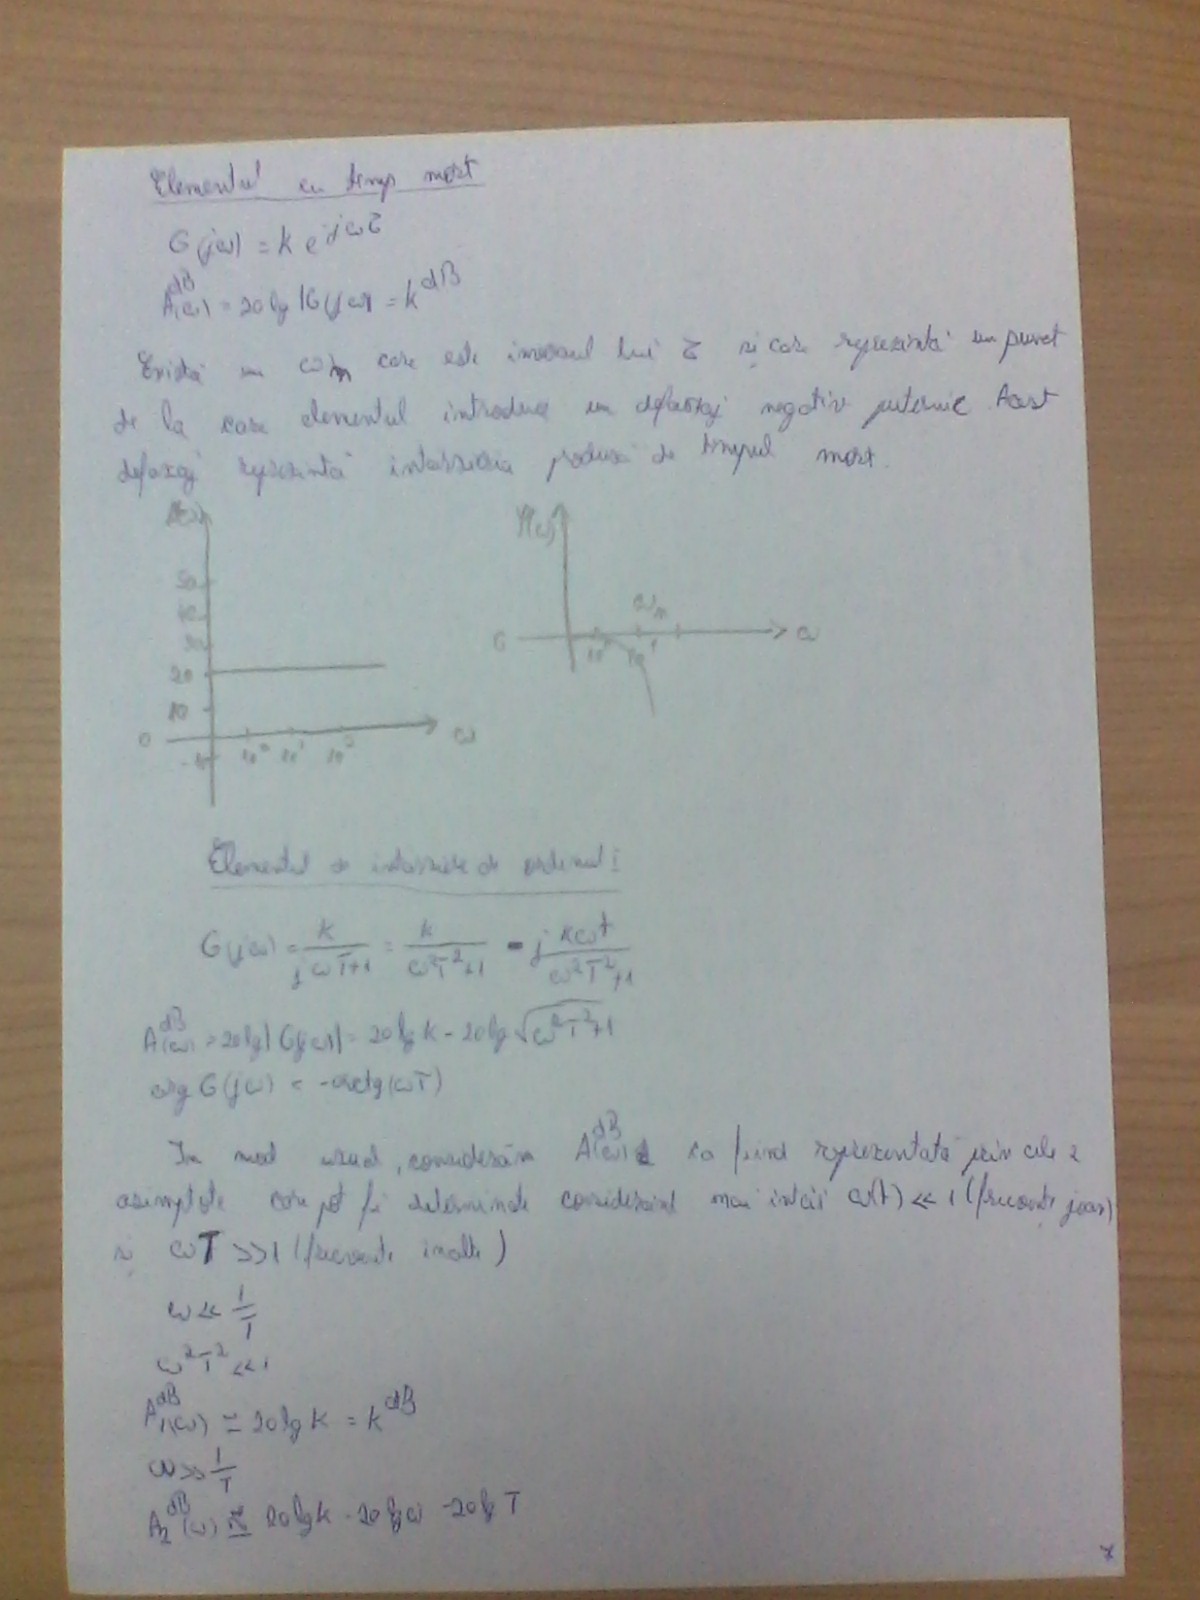 Elementul cu timp mort
G(jω) = k e^jωτ
A(ω)^dB = 20 lg |G(jω)| = k^dB
Există un ωm care este inversul lui τ și care reprezintă un punct
de la care elementul introduce un defazaj negativ puternic Acest
defazaj reprezintă întârzierea produsă de timpul mort.
A(ω)
50
40
30
20
10
0
-10
10^0 10^1 10^2
ω
φ(ω)
ωm
0
10^0 10^1
ω
Elementul de întârziere de ordinul I
G(jω) = k/(jωT+1) = k/(ω²T²+1) - j kωT/(ω²T²+1)
A(ω)^dB = 20 lg |G(jω)| = 20 lg k - 20 lg √(ω²T²+1)
arg G(jω) = -arctg(ωT)
În mod uzual, considerăm A(ω)^dB ca fiind reprezentată prin cele 2
asimptote care pot fi determinate considerând mai întâi ω(T) << 1 (frecvențe joase)
și ωT >> 1 (frecvențe înalte)
ω << 1/T
ω²T² << 1
A1(ω)^dB ≃ 20 lg k = k^dB
ω >> 1/T
A2^dB(ω) ≅ 20 lg k - 20 lg ω - 20 lg T